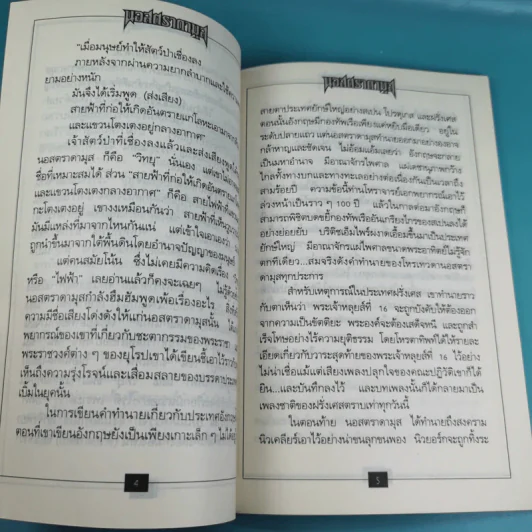 นอสตราดามุส
"เมื่อมนุษย์ทำให้สัตว์ป่าเชื่องลง
ภายหลังจากผ่านความยากลำบากและใช้ความ
ยามอย่างหนัก
มันจึงได้เริ่มพูด (ส่งเสียง)
สายฟ้าที่ก่อให้เกิดอันตรายแก่
และแขวนโตงเตงอยู่กลางอากาศ"
เจ้าสัตว์ป่าที่เชื่องลงแล้วและส่งเสียงพูดได้
นอสตราดามุส ก็คือ "วิทยุ" นั่นเอง
ชื่อที่เหมาะสมได้ ส่วน "สายฟ้าที่ก่อให้เกิดอันตราย
และแขวนโตงเตงกลางอากาศ" ก็คือ สายไฟฟ้า
กะโตงเตงอยู่ เขางงเหมือนกันว่า สายฟ้าที่
มันมีแหล่งที่มาจากไหนกันแน่ แต่เข้าใจเอาเอง
ถูกนำขึ้นมาจากใต้พื้นดินโดยอำนาจปัญญาของมนุษย์
แต่คนสมัยโน้น ซึ่งไม่เคยมีความคิดเรื่อง
หรือ "ไฟฟ้า" เลยอ่านแล้วก็คงจะเฉยๆ ไม่รู้ด้วย
นอสตราดามุสกำลังฮึมฮัมพูดเพ้อเรื่องอะไร
ความมีชื่อเสียงโด่งดังให้แก่นอสตราดามุสนั้น
พยากรณ์ของเขาที่เกี่ยวกับชะตากรรมของพระราชา
พระราชวงศ์ต่าง ๆ ของยุโรปเขาได้เขียนชี้เอาไว้
เห็นถึงความรุ่งโรจน์และเสื่อมสลายของบรรดา
เบิ้มในยุคนั้น
ในการเขียนคำทำนายเกี่ยวกับประเทศอังกฤษ
ตอนที่เขาเขียนอังกฤษยังเป็นเพียงเกาะเล็ก ๆ ไม่ได้
4
นอสตราดามุส
สายตาประเทศยักษ์ใหญ่อย่างสเปน โปรตุเกส และฝรั่งเศส
ตอนนั้นอังกฤษมีกองทัพเรือเพียงแค่หยิบมือเดียว อยู่ใน
ระดับปลายแถว แต่นอสตราดามุสทำนายออกมาอย่างองอาจ
กล้าหาญและชัดเจน ไม่อ้อมแอ้มเลยว่า อังกฤษจะกลาย
เป็นมหาอำนาจ มีอาณาจักรไพศาล แผ่เดชานุภาพกว้าง
ไกลทั้งทางบกและทางทะเลอย่างต่อเนื่องกันเป็นเวลาถึง
สามร้อยปี ความข้อนี้ท่านโหราจารย์เอกพยากรณ์เอาไว้
ล่วงหน้าเป็นราว ๆ 100 ปี แล้วในกาลต่อมาอังกฤษก็
สามารถพิชิตบดขยี้กองทัพเรืออันเกรียงไกรของสเปนลงได้
อย่างย่อยยับ บริติชเอ็มไพร์ผงาดเอื้อมขึ้นมาเป็นประเทศ
ยักษ์ใหญ่ มีอาณาจักรแผ่ไพศาลขนาดพระอาทิตย์ไม่รู้จัก
ตกทีเดียว...สมจริงดังคำทำนายของโหรเทวดานอสตรา
ดามุสทุกประการ
สำหรับเหตุการณ์ในประเทศฝรั่งเศส เขาทำนายราว
กับตาเห็นว่า พระเจ้าหลุยส์ที่ 16 จะถูกบังคับให้ต้องออก
จากความเป็นขัตติยะ พระองค์จะต้องเสด็จหนี และถูกสำ
เร็จโทษอย่างไร้ความยุติธรรม โดยโหรตาทิพย์ได้ให้รายละ
เอียดเกี่ยวกับวาระสุดท้ายของพระเจ้าหลุยส์ที่ 16 ไว้อย่าง
ไม่น่าเชื่อแม้แต่เสียงเพลงปลุกใจของคณะปฏิวัติเขาก็ได้
ยิน...และบันทึกลงไว้ และบทเพลงนั้นก็ได้กลายมาเป็น
เพลงชาติของฝรั่งเศสตราบเท่าทุกวันนี้
ในตอนท้าย นอสตราดามุส ได้ทำนายถึงสงคราม
นิวเคลียร์เอาไว้อย่างน่าขนลุกขนพอง นิวยอร์กจะถูกทิ้งระ
5